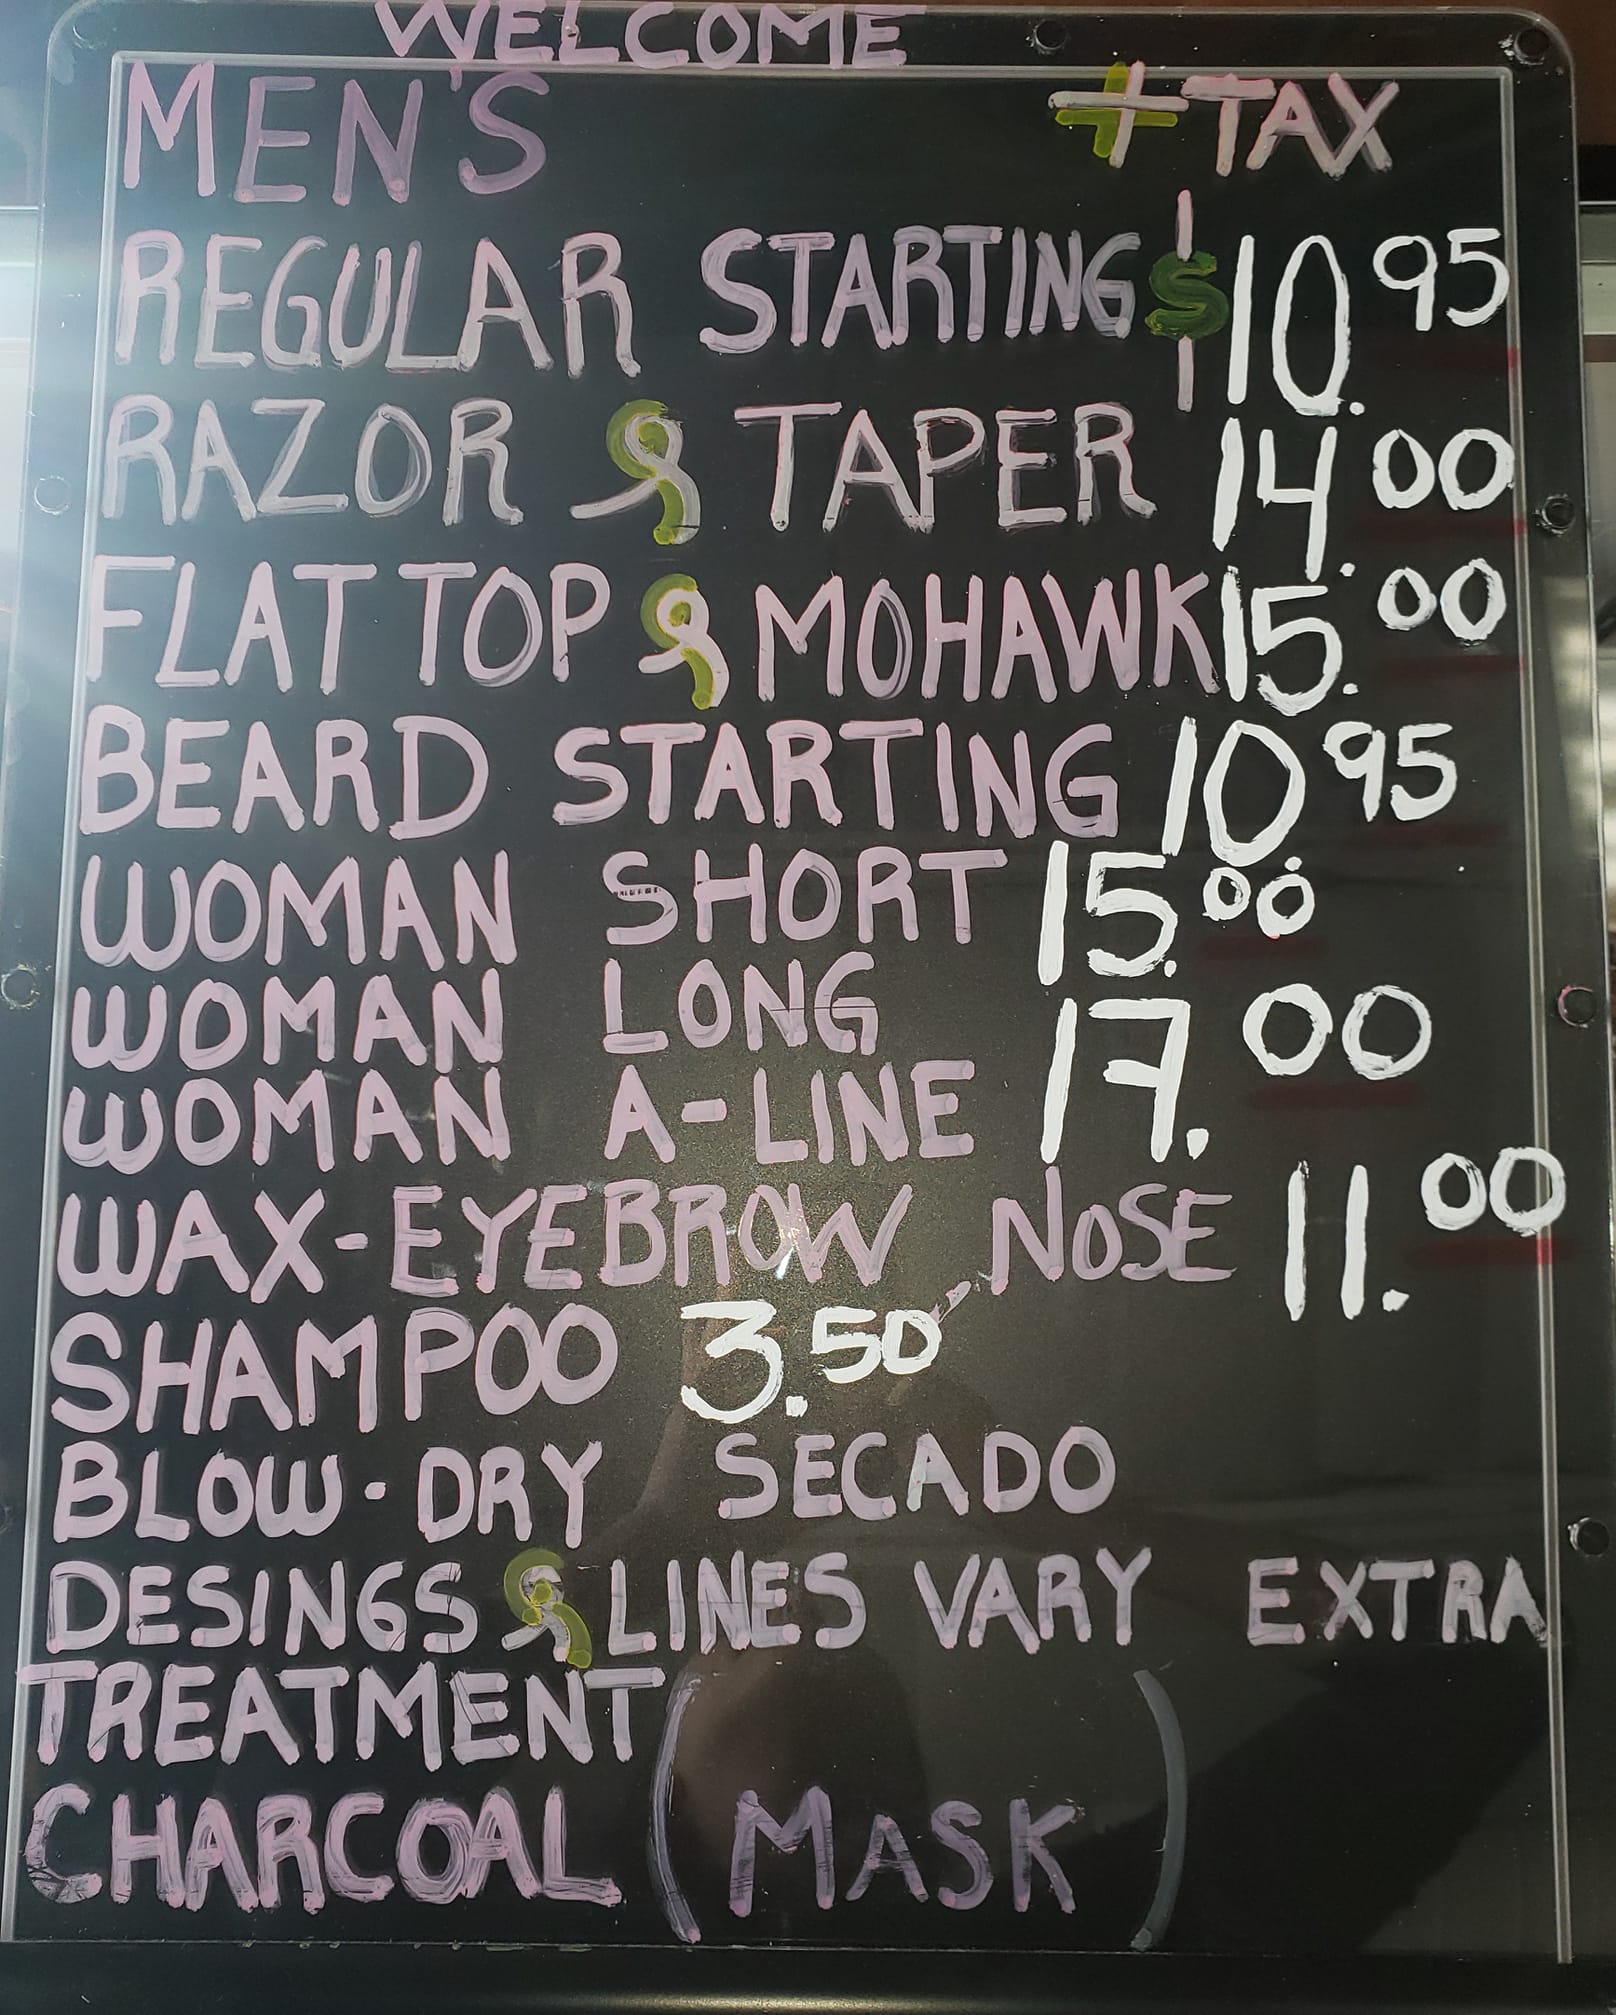 WELCOME
MEN'S + TAX
REGULAR STARTING $10.95
RAZOR & TAPER 14.00
FLAT TOP & MOHAWK 15.00
BEARD STARTING 10.95
WOMAN SHORT 15.00
WOMAN LONG 17.00
WOMAN A-LINE
WAX-EYEBROW, NOSE 11.00
SHAMPOO 3.50
BLOW-DRY SECADO
DESINGS & LINES VARY EXTRA
TREATMENT
CHARCOAL (MASK)